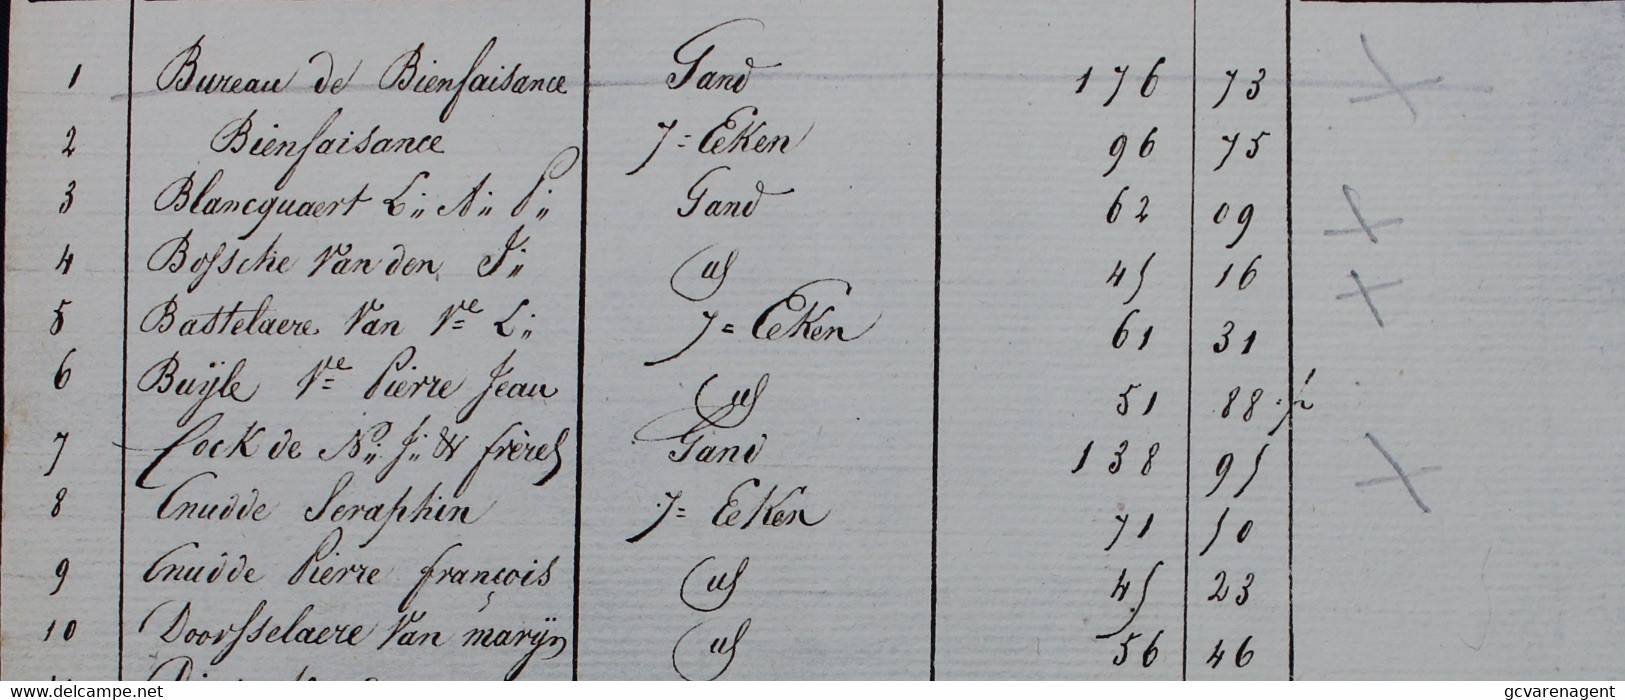 1 Bureau de Bienfaisance Gand 176 73
2 Bienfaisance S= Eeken 96 75
3 Blancquaert L:: A:: P:: Gand 62 09
4 Bossche Van den J:: id 45 16
5 Bastelaere Van Ve L:: S= Eeken 61 31
6 Buÿle Ve Pierre Jean id 51 88
7 Cock de N:: J:: & frères Gand 138 95
8 Cnudde Seraphin S= Eeken 71 50
9 Cnudde Pierre françois id 45 23
10 Doorsselaere Van marÿn id 56 46
https://www.delcampe.net
gcvarenagent